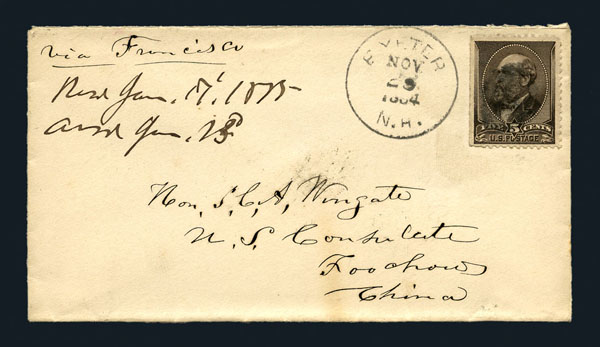 via Francisco
Recd Jan. 17, 1885
Ansd Jan. 18
EXETER
NOV
29
1884
N.H.
5 CENTS
U.S. POSTAGE
Hon. J. C. A. Wingate
U. S. Consulate
Foochow
China